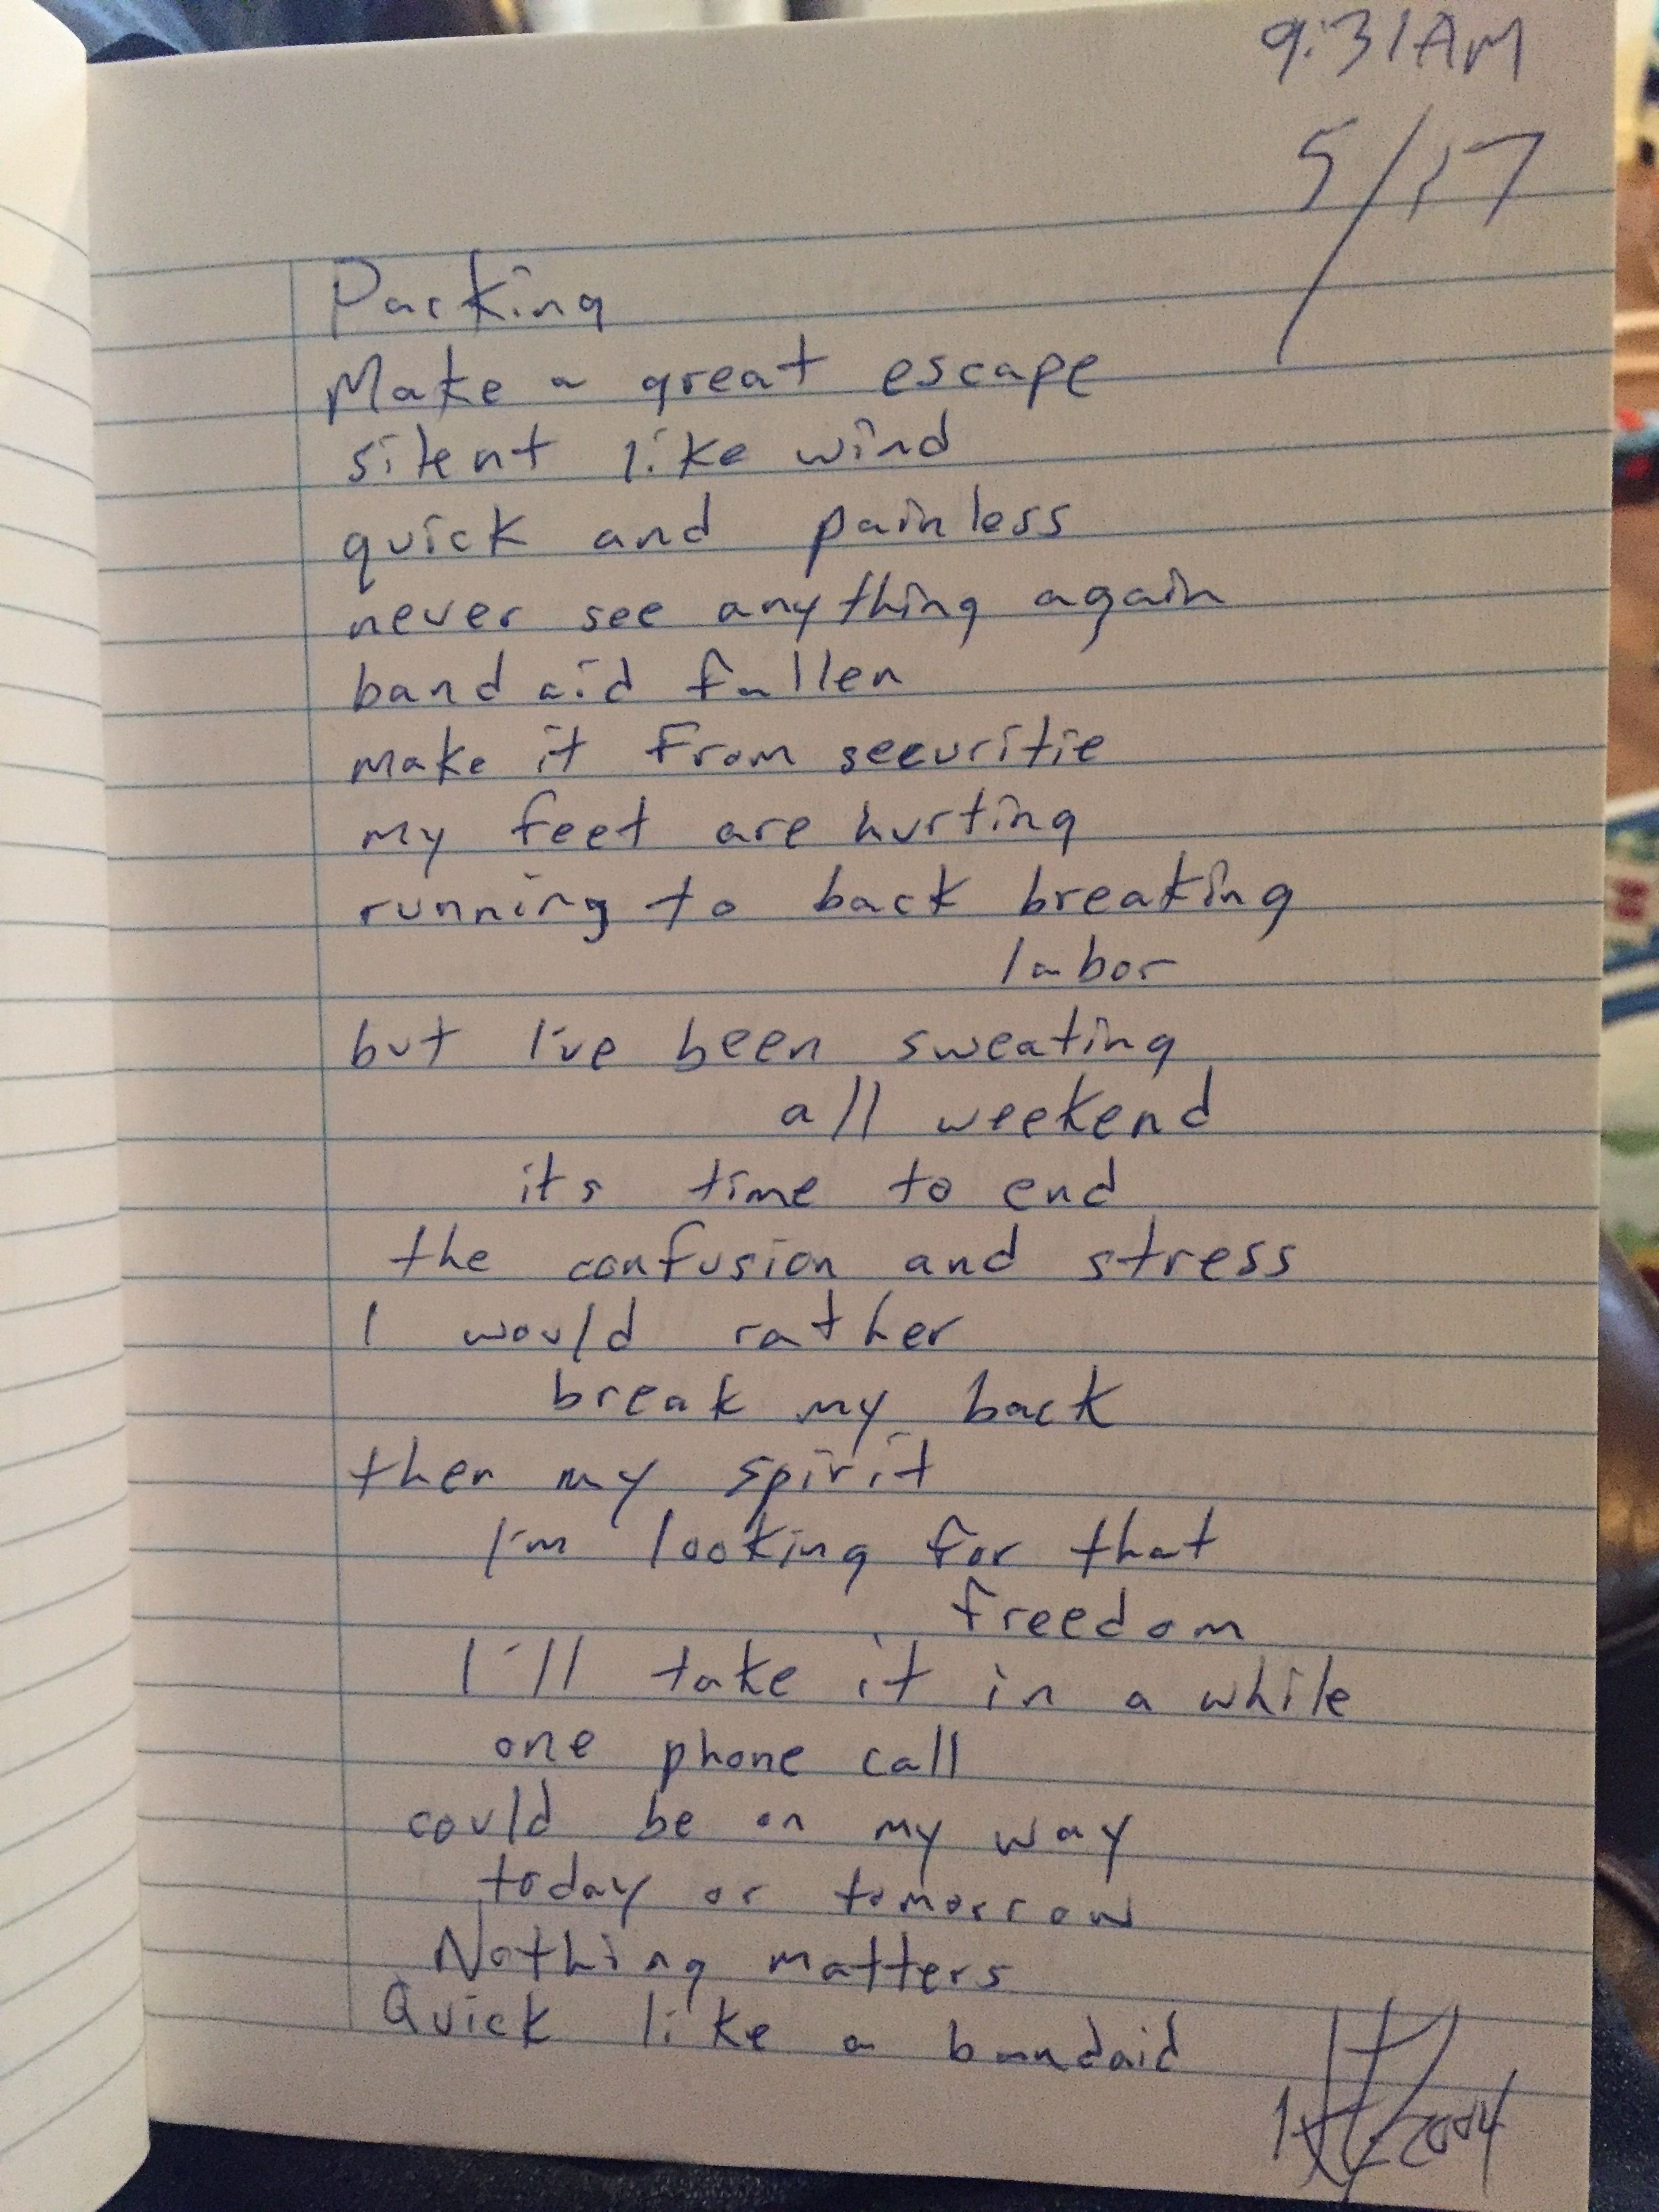 9:31AM
5/17
Packing
Make a great escape
silent like wind
quick and painless
never see anything again
band aid fallen
make it from seeuritie
my feet are hurting
running to back breaking
labor
but I've been sweating
all weekend
its time to end
the confusion and stress
I would rather
break my back
then my spirit
I'm looking for that
freedom
I'll take it in a while
one phone call
could be on my way
today or tomorrow
Nothing matters
Quick like a bandaid